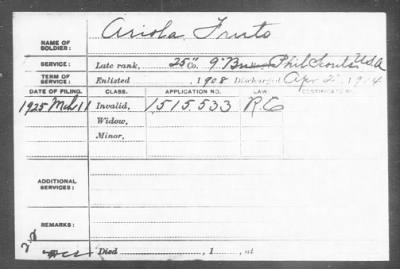 NAME OF SOLDIER: Ariola Fruto
SERVICE: Late rank, 25" Co. 9" Bn Phil Scouts USA
TERM OF SERVICE: Enlisted 1908 Discharged Apr 2, 1914
DATE OF FILING. CLASS. APPLICATION NO. LAW. CERTIFICATE NO.
1925 Mch 11 Invalid, 1,515,533
Widow,
Minor,
ADDITIONAL SERVICES:
REMARKS:
Died , 1 , at